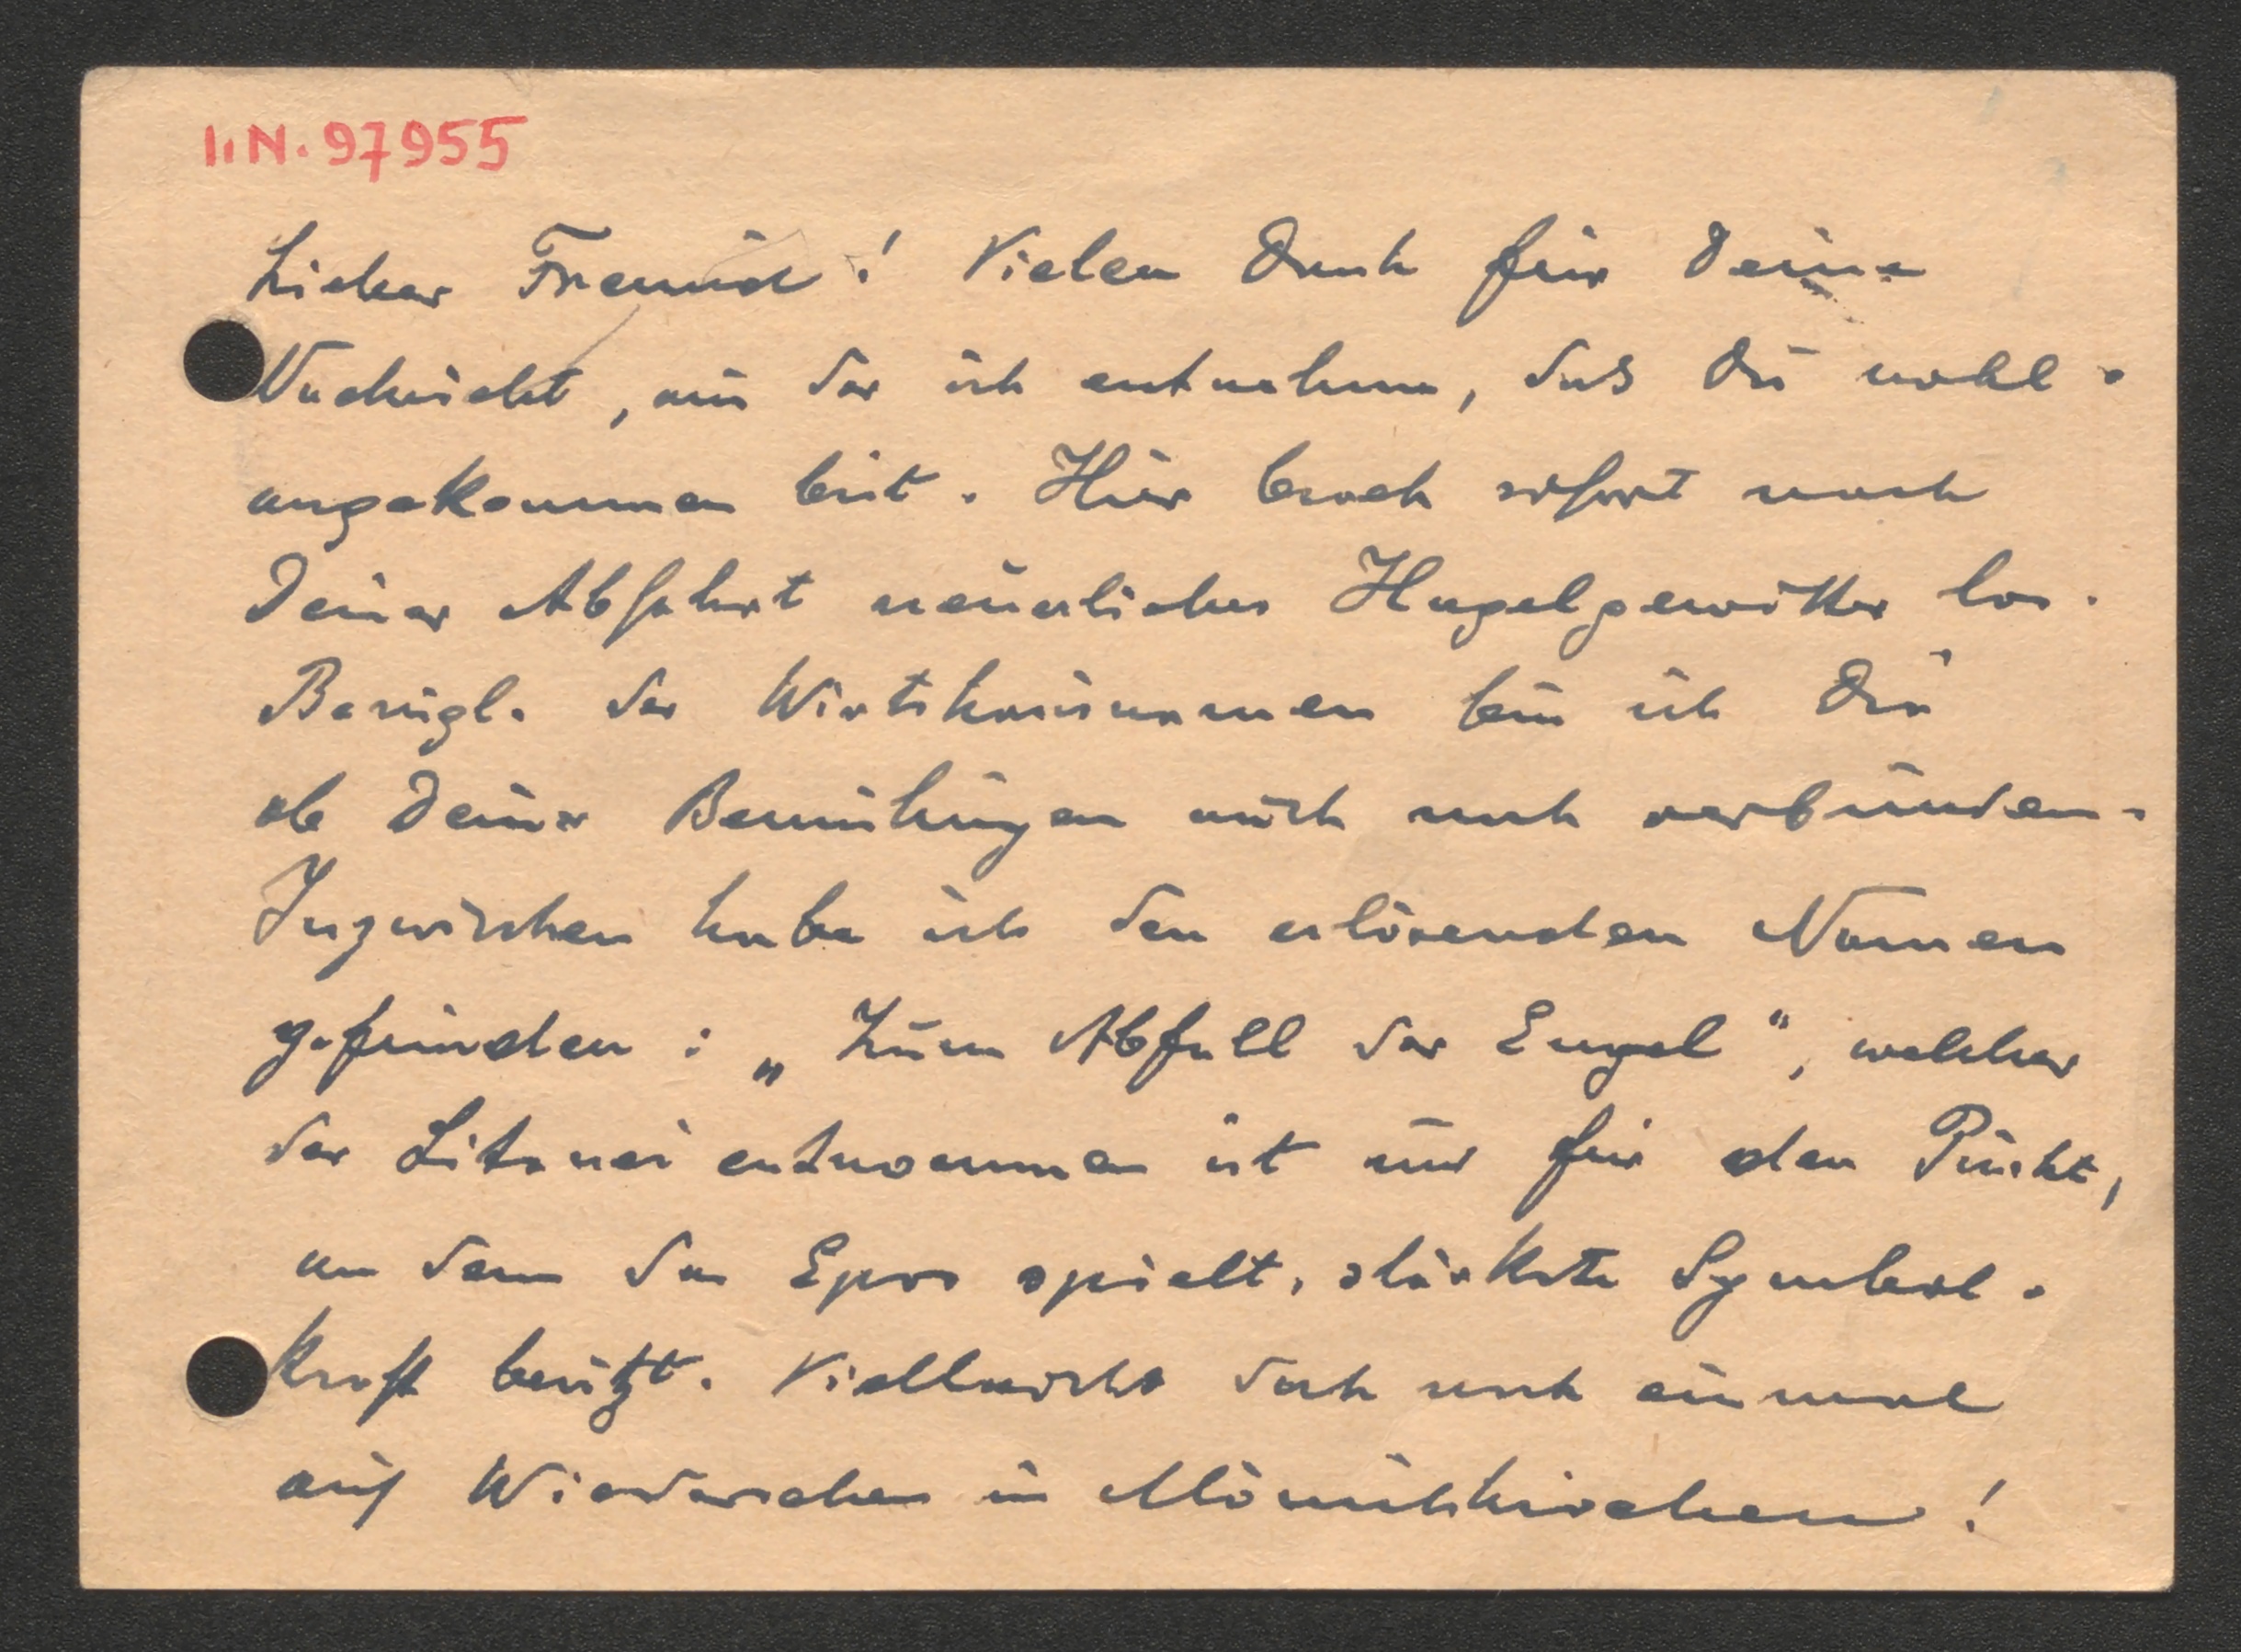 I.N. 97955
Lieber Freund! Vielen Dank für Deine
Nachricht, aus der ich entnehme, daß Du wohl-
angekommen bist. Hier brach sofort nach
Deiner Abfahrt neuerliches Hagelgewitter los.
Bezügl. der Wirtshausnamen bin ich Dir
ob Deiner Bemühungen auch noch verbunden.
Inzwischen habe ich den erlösenden Namen
gefunden: „Zum Abfall der Engel", welcher
der Litanei entnommen ist und für den Punkt,
an dem das Epos spielt, stärkste Symbol-
kraft besitzt. Vielleicht doch noch einmal
auf Wiedersehen in Mönichkirchen!